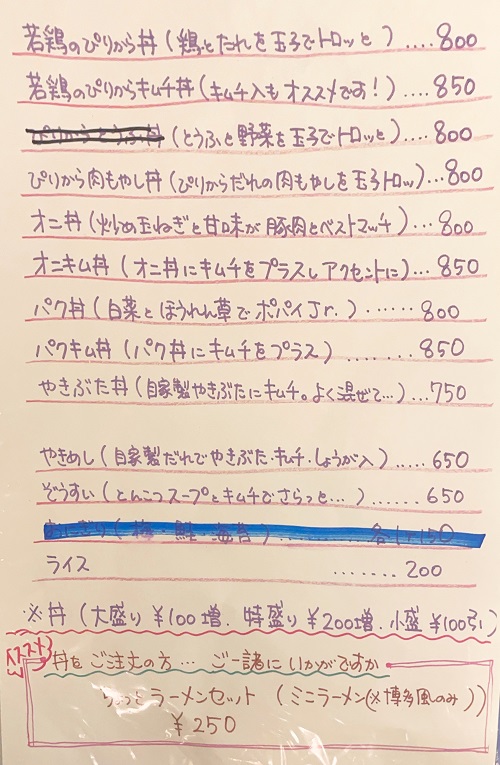 若鶏のぴりから丼(鶏とたれを玉子でトロッと)....800
若鶏のぴりからキムチ丼(キムチ入もオススメです!)....850
ぴりからとうふ丼(とうふと野菜を玉子でトロッと)....800
ぴりから肉もやし丼(ぴりからだれの肉もやしを玉子トロッ)...800
オニ丼(炒め玉ねぎと甘味が豚肉とベストマッチ)...800
オニキム丼(オニ丼にキムチをプラスしアクセントに)...850
パク丼(白菜とほうれん草でポパイJr.)......800
パクキム丼(パク丼にキムチをプラス).......850
やきぶた丼(自家製やきぶたにキムチ。よく混ぜて...)...750
やきめし(自家製だれでやきぶた・キムチ・しょうが入).....650
ぞうすい(とんこつスープとキムチでさらっと...)......650
おにぎり(梅 鮭 海苔)..........各1ヶ150
ライス .......200
※丼(大盛り¥100増.特盛り¥200増.小盛¥100引)
ベスト
丼をご注文の方...ご一諸にいかがですか
ちょっとラーメンセット(ミニラーメン(※博多風のみ))
¥250